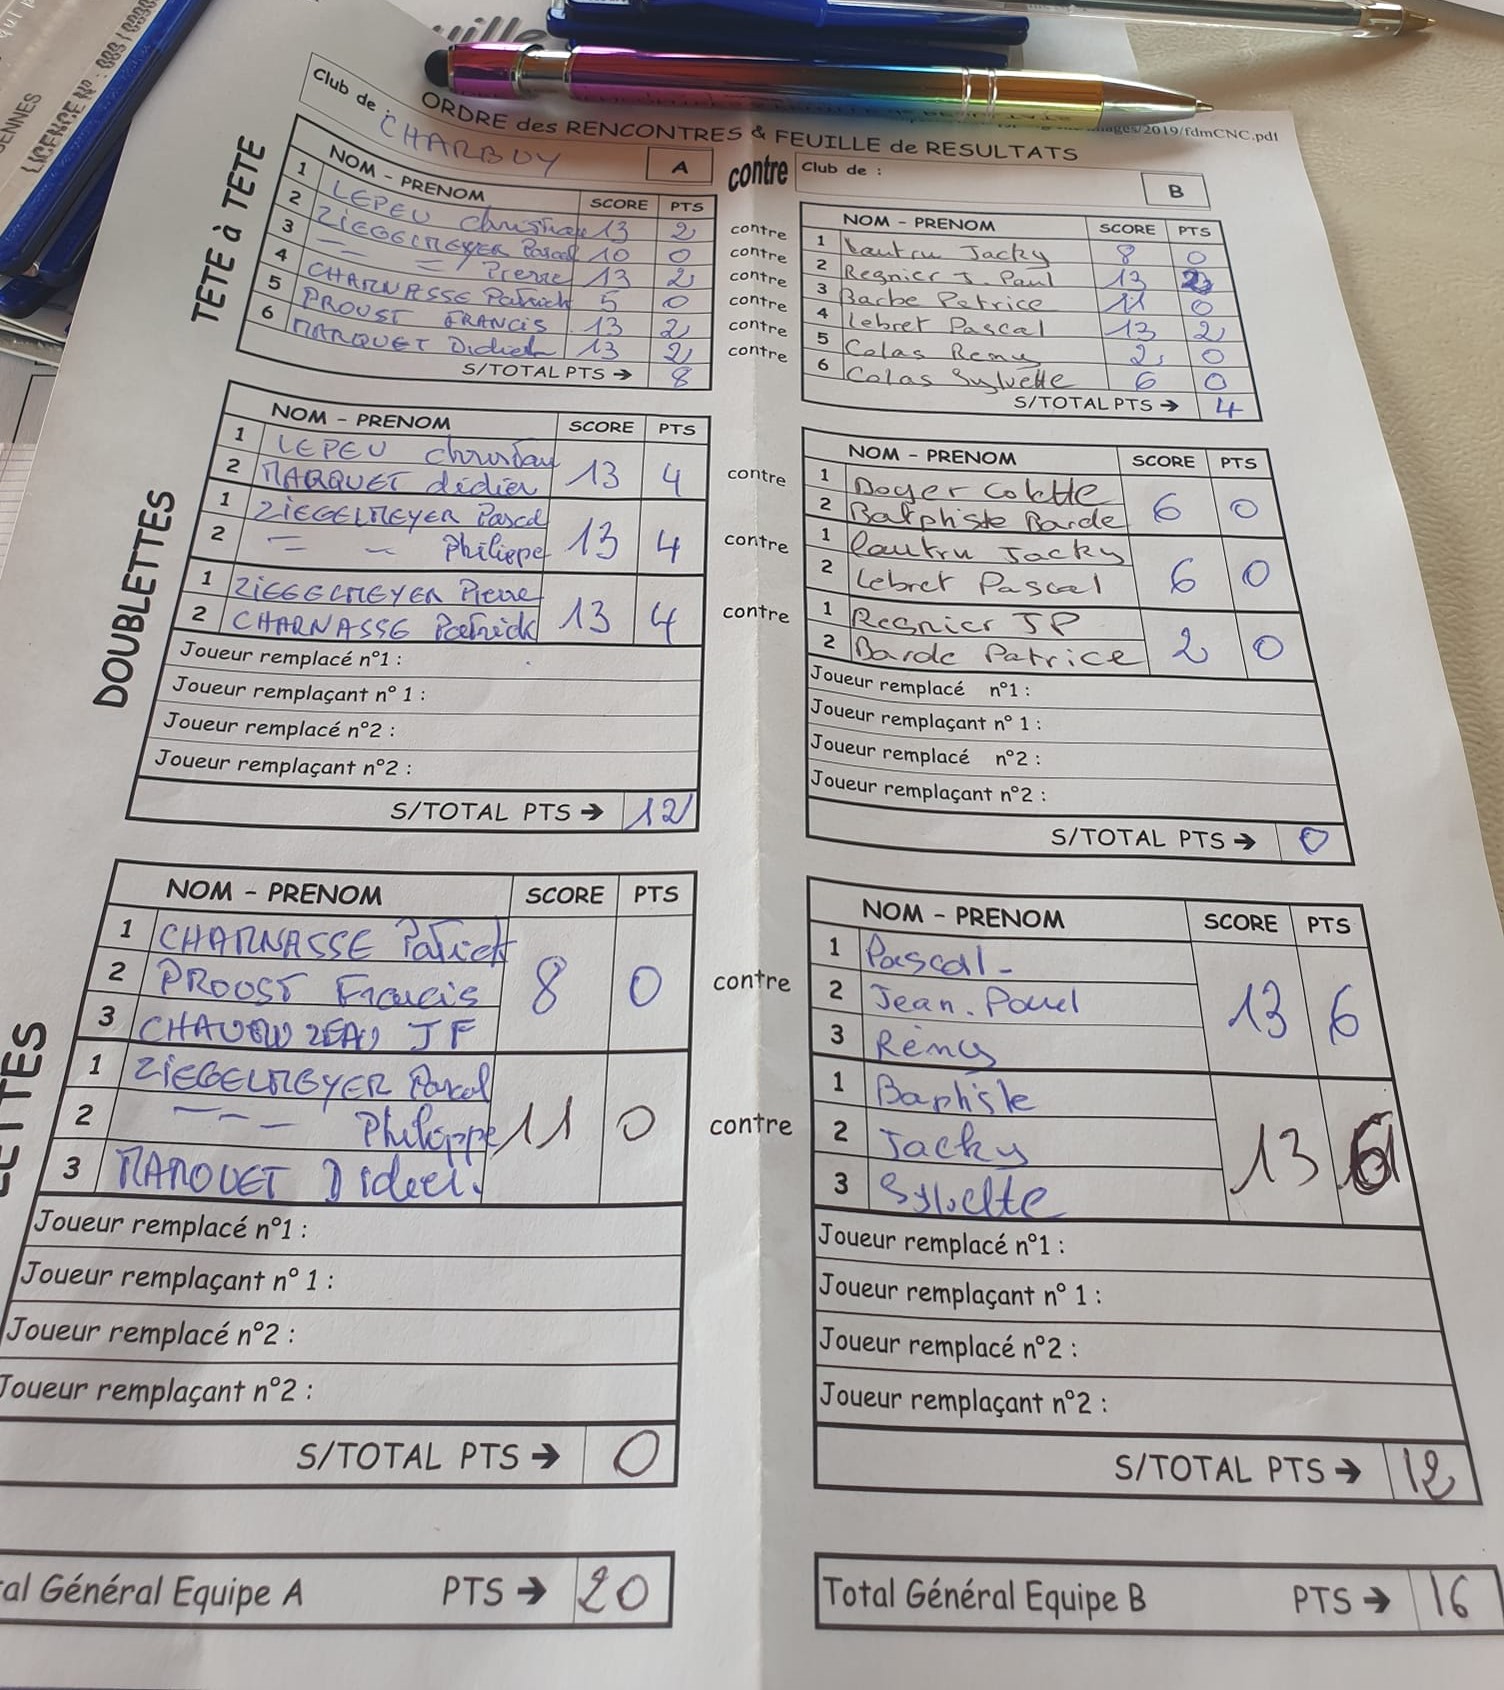 ENNES
LICENCE N° : 083
ville
images/2019/fdmCNC.pdf
ORDRE des RENCONTRES & FEUILLE de RESULTATS
Club de : CHARBUY A contre Club de : B
TETE à TETE
NOM - PRENOM SCORE PTS
1 LEPEU Christian 13 2
2 ZIEGELMEYER Pascal 10 0
3 = = Pierre 13 2
4 CHARNASSE Patrick 5 0
5 PROUST FRANCIS 13 2
6 MARQUET Didier 13 2
S/TOTAL PTS → 8
contre
contre
contre
contre
contre
contre
NOM - PRENOM SCORE PTS
1 Lautru Jacky 8 0
2 Regnier J. Paul 13 2
3 Barbe Patrice 11 0
4 Lebret Pascal 13 2
5 Colas Remy 2 0
6 Colas Sylvette 6 0
S/TOTAL PTS → 4
DOUBLETTES
NOM - PRENOM SCORE PTS
1 LEPEU Christian
2 MARQUET didier 13 4
1 ZIEGELMEYER Pascal
2 = - Philippe 13 4
1 ZIEGELMEYER Pierre
2 CHARNASSE Patrick 13 4
Joueur remplacé n°1 :
Joueur remplaçant n° 1 :
Joueur remplacé n°2 :
Joueur remplaçant n°2 :
S/TOTAL PTS → 12
contre
contre
contre
NOM - PRENOM SCORE PTS
1 Doyer Colette
2 Batphiste Barde 6 0
1 Lautru Jacky
2 Lebret Pascal 6 0
1 Regnier JP
2 Barde Patrice 2 0
Joueur remplacé n°1 :
Joueur remplaçant n° 1 :
Joueur remplacé n°2 :
Joueur remplaçant n°2 :
S/TOTAL PTS → 0
ETTES
NOM - PRENOM SCORE PTS
1 CHARNASSE Patrick
2 PROOST Francis 8 0
3 JF
1 ZIEGELMEYER Pascal
2 -- - Philippe 11 0
3 MARQUET Didier.
Joueur remplacé n°1 :
Joueur remplaçant n° 1 :
Joueur remplacé n°2 :
Joueur remplaçant n°2 :
S/TOTAL PTS → 0
contre
contre
NOM - PRENOM SCORE PTS
1 Pascal -
2 Jean. Paul 13 6
3 Rémy
1 Baptiste
2 Jacky 13 6
3 Sylvette
Joueur remplacé n°1 :
Joueur remplaçant n° 1 :
Joueur remplacé n°2 :
Joueur remplaçant n°2 :
S/TOTAL PTS → 12
al Général Equipe A PTS → 20
Total Général Equipe B PTS → 16